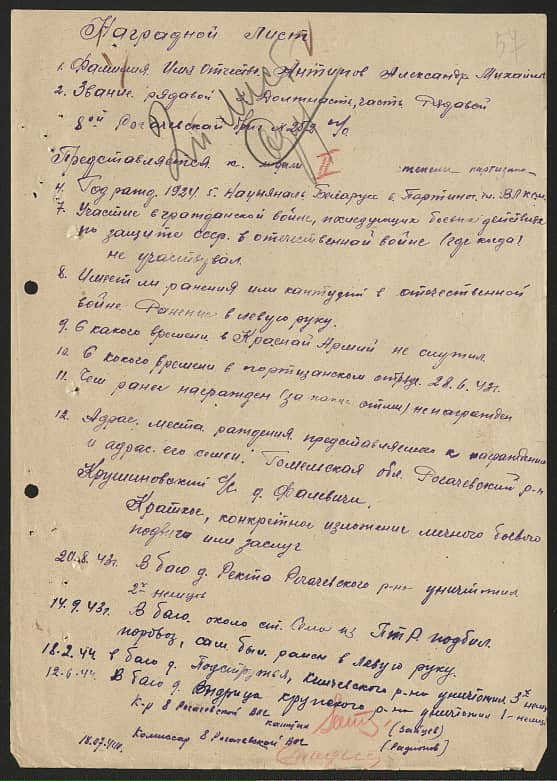 Наградной Лист
57
1. Фамилия Имя Отчество Антипов Александр Михайл
2. Звание рядавой Должность, часть Рядавой
8ой Рогачевской бриг
Представляется к медали II степени партизан
4. Год рожд. 1924 г. Нацыяналь Беларус 6. Партийн. чл. ВЛКСМ
7. Участие в гражданской войне, последующих боевых действиях
по защите ссср. в отечественной войне (где когда)
не участвувал.
8. Имеет ли ранения или кантузий в отечественной
войне Ранение в левую руку.
9. С какого времени в Красной Армий не служил
10. С кокого времени в портизанском отряд. 28.6.43г.
11. Чем ранее награжден (за какие отлич) не награжден
12. Адрас. места раждения представляемого к награждению
и адрас. его семьи. Гомельская обл. Рогачевский р-н
Крушиновский с/с д. Фалевичи.
Краткое, конкретное изложение личного боевого
подвига или заслуг
20.8.43г. В баю д. Ректа Рогачевского р-на уничтожил
2х немцов
14.9.43г. В баю около ст. из ПТР подбил
поровоз, сам был ранен в левую руку.
18.2.44 в баю д. Кличевского р-на уничтожил 3х немц
12.6.44. В баю д. крупского р-на уничтожил 1-немца
К-р 8 Рогачевской ВОГ капитан (Зайцев)
Комисар 8 Рогачевской ВОГ (Радионов)
18.07.44г.